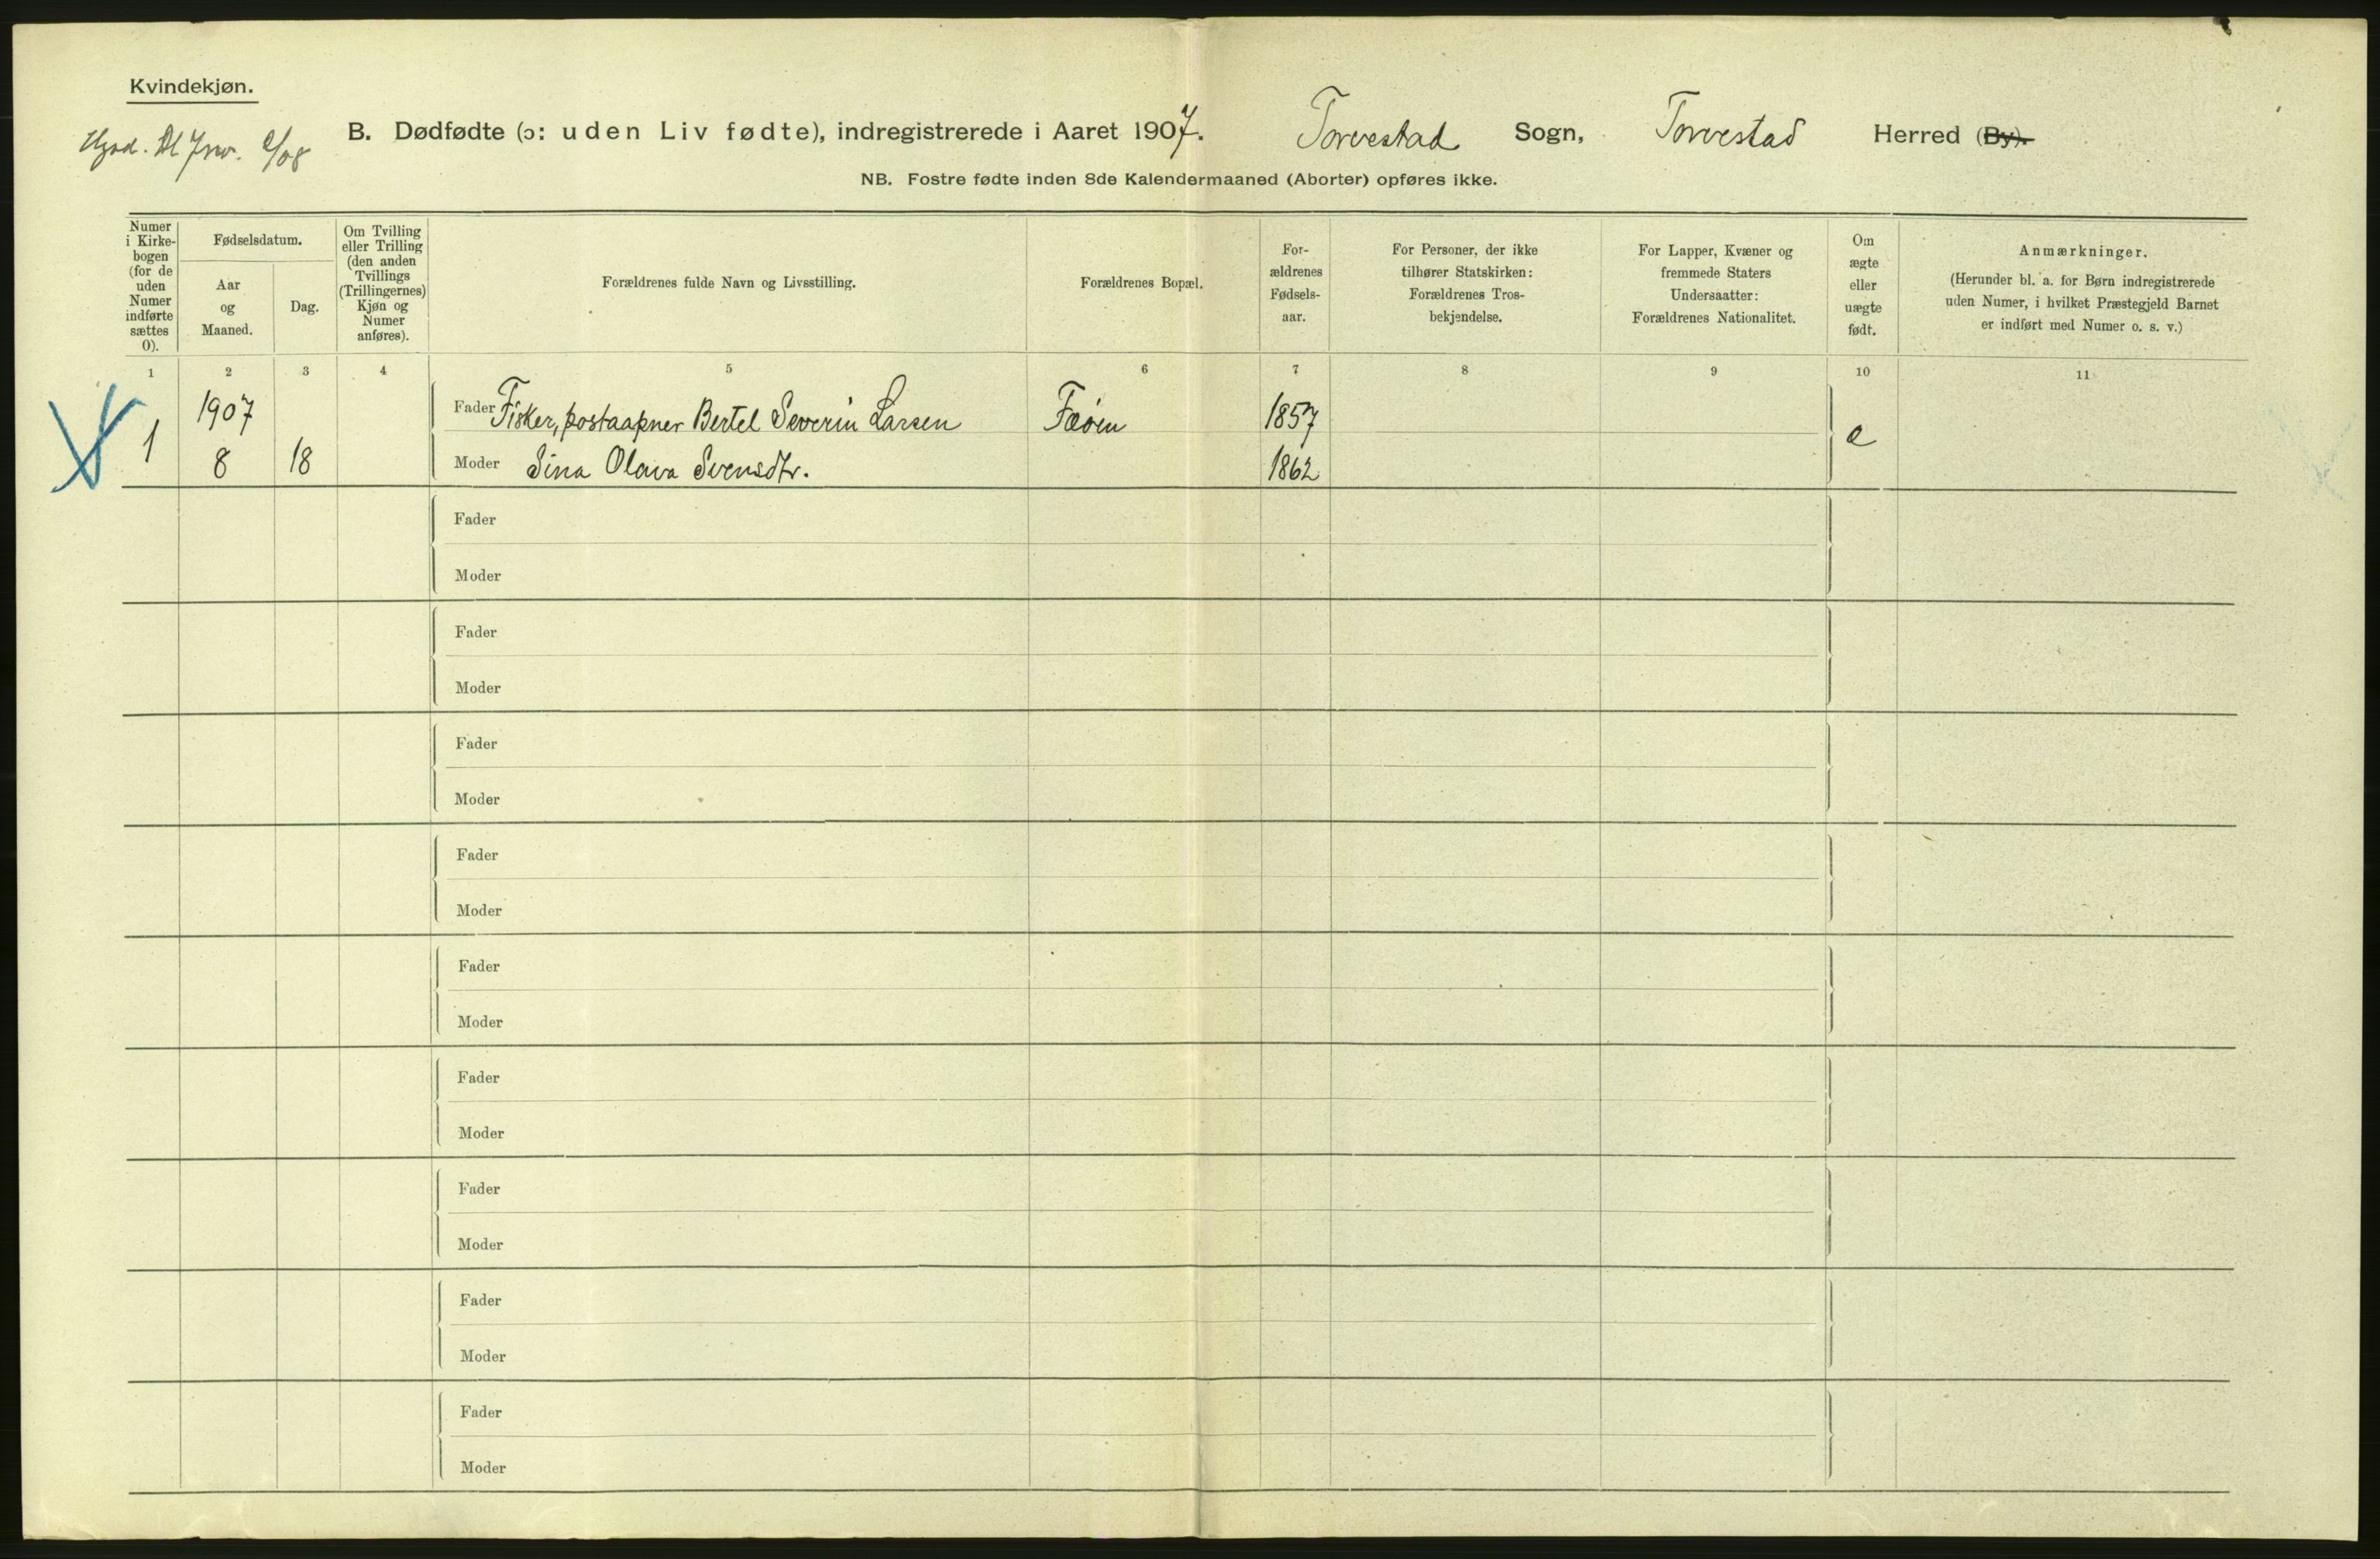 Kvindekjøn.
B. Dødfødte (ɔ: uden Liv fødte), indregistrerede i Aaret 1907. Torvestad Sogn, Torvestad Herred (By).
NB. Fostre fødte inden 8de Kalendermaaned (Aborter) opføres ikke.
Numer
i Kirke-
bogen
(for de
uden
Numer
indførte
sættes
0).
Fødselsdatum.
Aar
og
Maaned.
Dag.
Om Tvilling
eller Trilling
(den anden
Tvillings
(Trillingernes)
Kjøn og
Numer
anføres).
Forældrenes fulde Navn og Livsstilling.
Forældrenes Bopæl.
For-
ældrenes
Fødsels-
aar.
For Personer, der ikke
tilhører Statskirken:
Forældrenes Tros-
bekjendelse.
For Lapper, Kvæner og
fremmede Staters
Undersaatter:
Forældrenes Nationalitet.
Om
ægte
eller
uægte
født.
Anmærkninger.
(Herunder bl. a. for Børn indregistrerede
uden Numer, i hvilket Præstegjeld Barnet
er indført med Numer o. s. v.)
1 2 3 4 5 6 7 8 9 10 11
1907 Fader Fisker, postaapner Bertel Severin Larsen Fæøen 1857
1 8 18 Moder Sina Olava Svensdtr. 1862 e
Fader
Moder
Fader
Moder
Fader
Moder
Fader
Moder
Fader
Moder
Fader
Moder
Fader
Moder
Fader
Moder
Fader
Moder